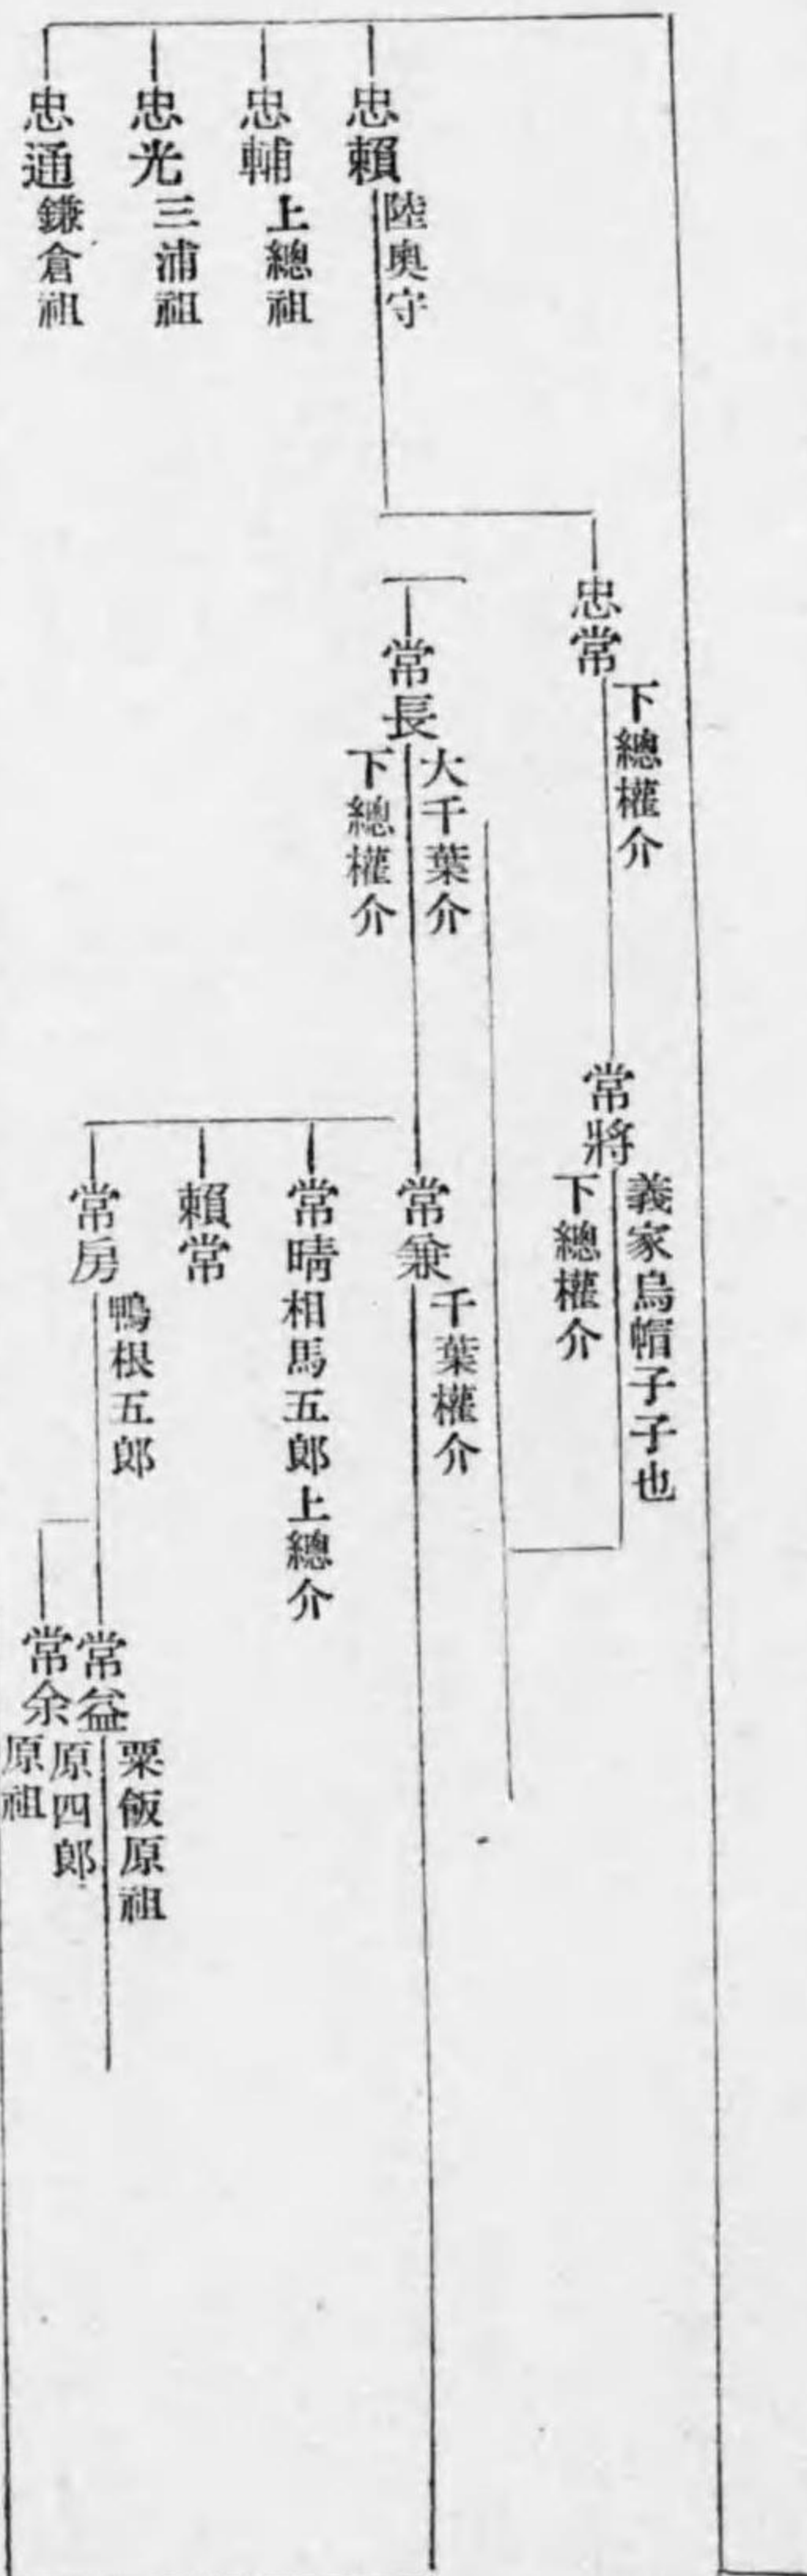 忠賴 陸奥守
忠輔 上總祖
忠光 三浦祖
忠通 鎌倉祖
忠常 下總權介
常將 義家烏帽子子也
下總權介
常長 大千葉介
下總權介
常兼 千葉權介
常晴 相馬五郎上總介
賴常
常房 鴨根五郎
常益 粟飯原祖
常余 原四郎
原祖